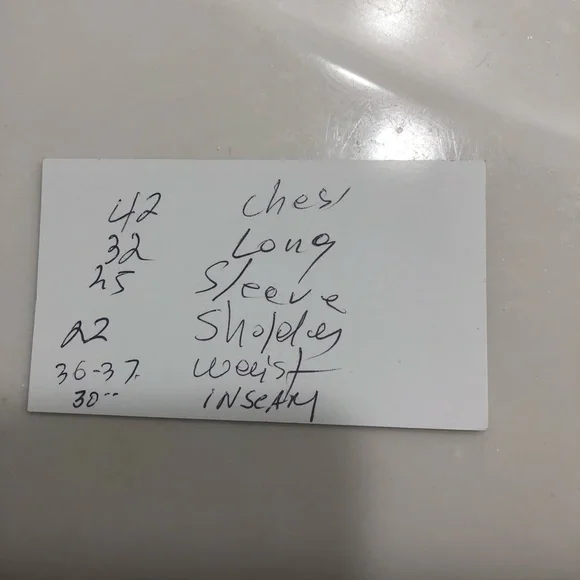 42 Chest
32 Long
25 Sleeve
22 Sholder
36-37. Waist
30" INSEAM